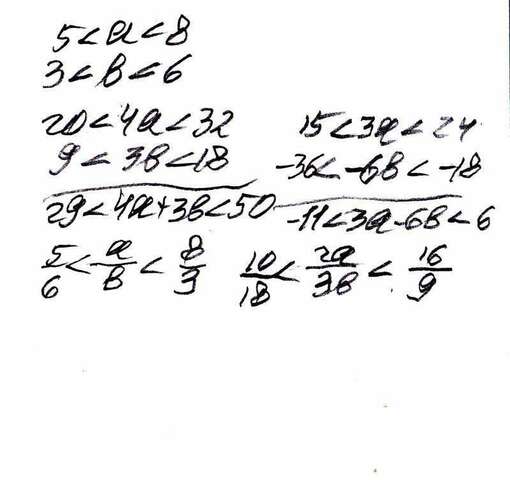 5 < a < 8
3 < в < 6
20 < 4a < 32
9 < 3в < 18
29 < 4a + 3в < 50
15 < 3a < 24
-36 < -6в < -18
-11 < 3a - 6в < 6
5/6 < a/в < 8/3
10/18 < 2a/3в < 16/9